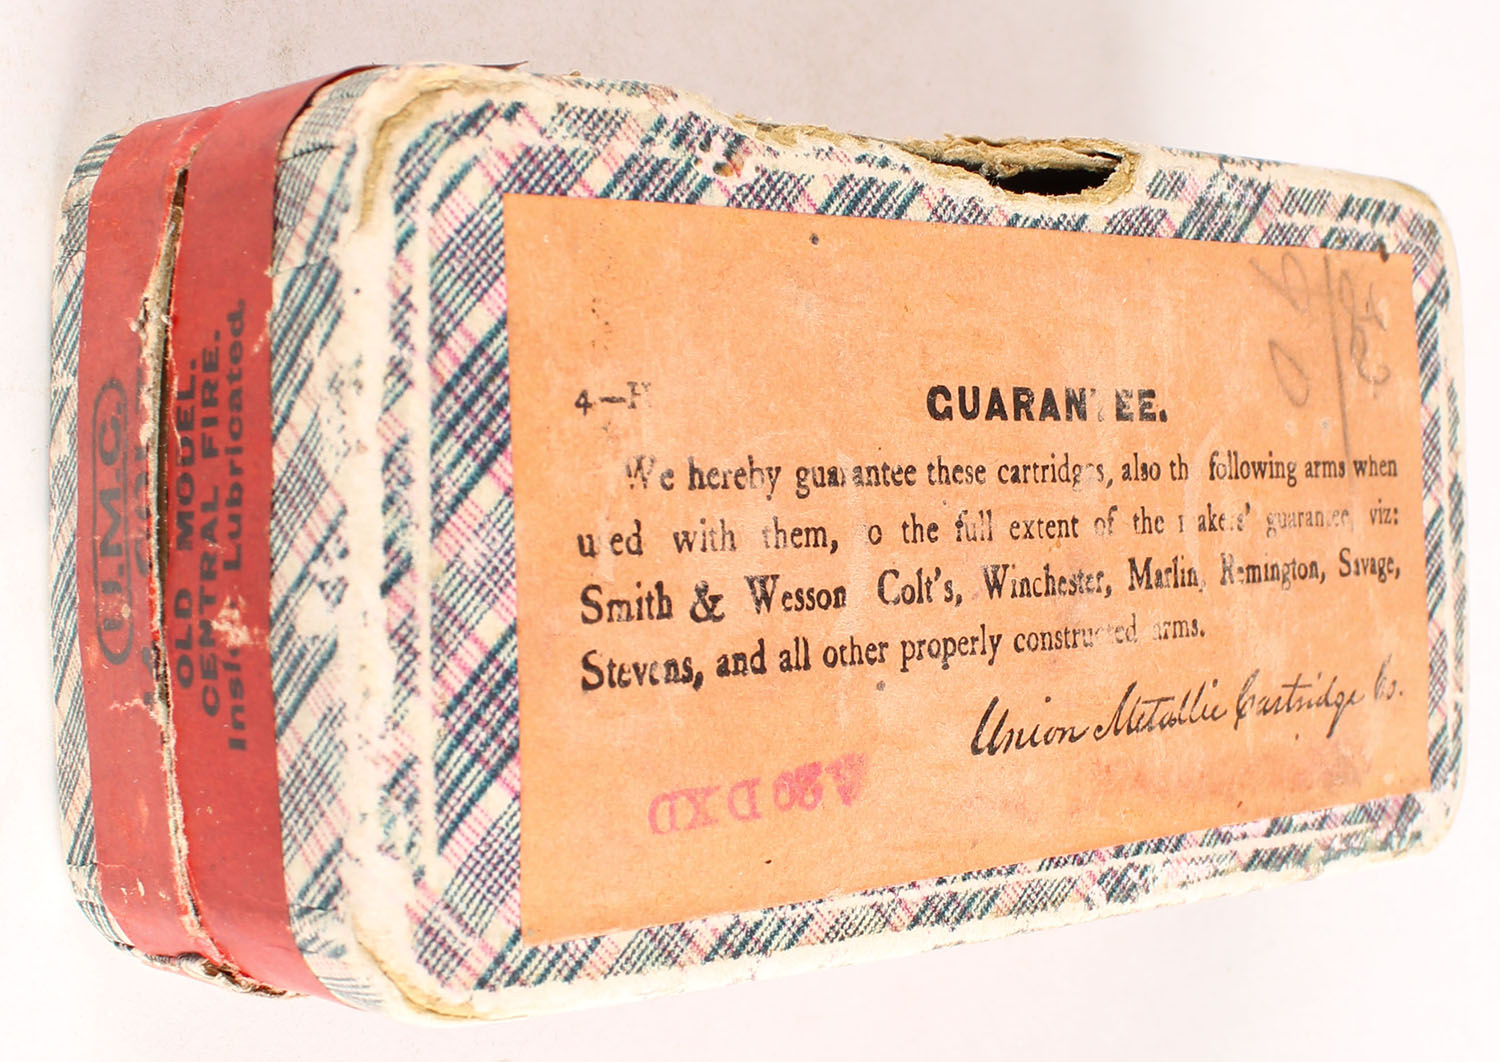 4—H
GUARANTEE.
We hereby guarantee these cartridges, also the following arms when
used with them, to the full extent of the makers' guarantee, viz:
Smith & Wesson Colt's, Winchester, Marlin, Remington, Savage,
Stevens, and all other properly constructed arms.
Union Metallic Cartridge Co.
U.M.C.
OLD MODEL.
CENTRAL FIRE.
Inside Lubricated.